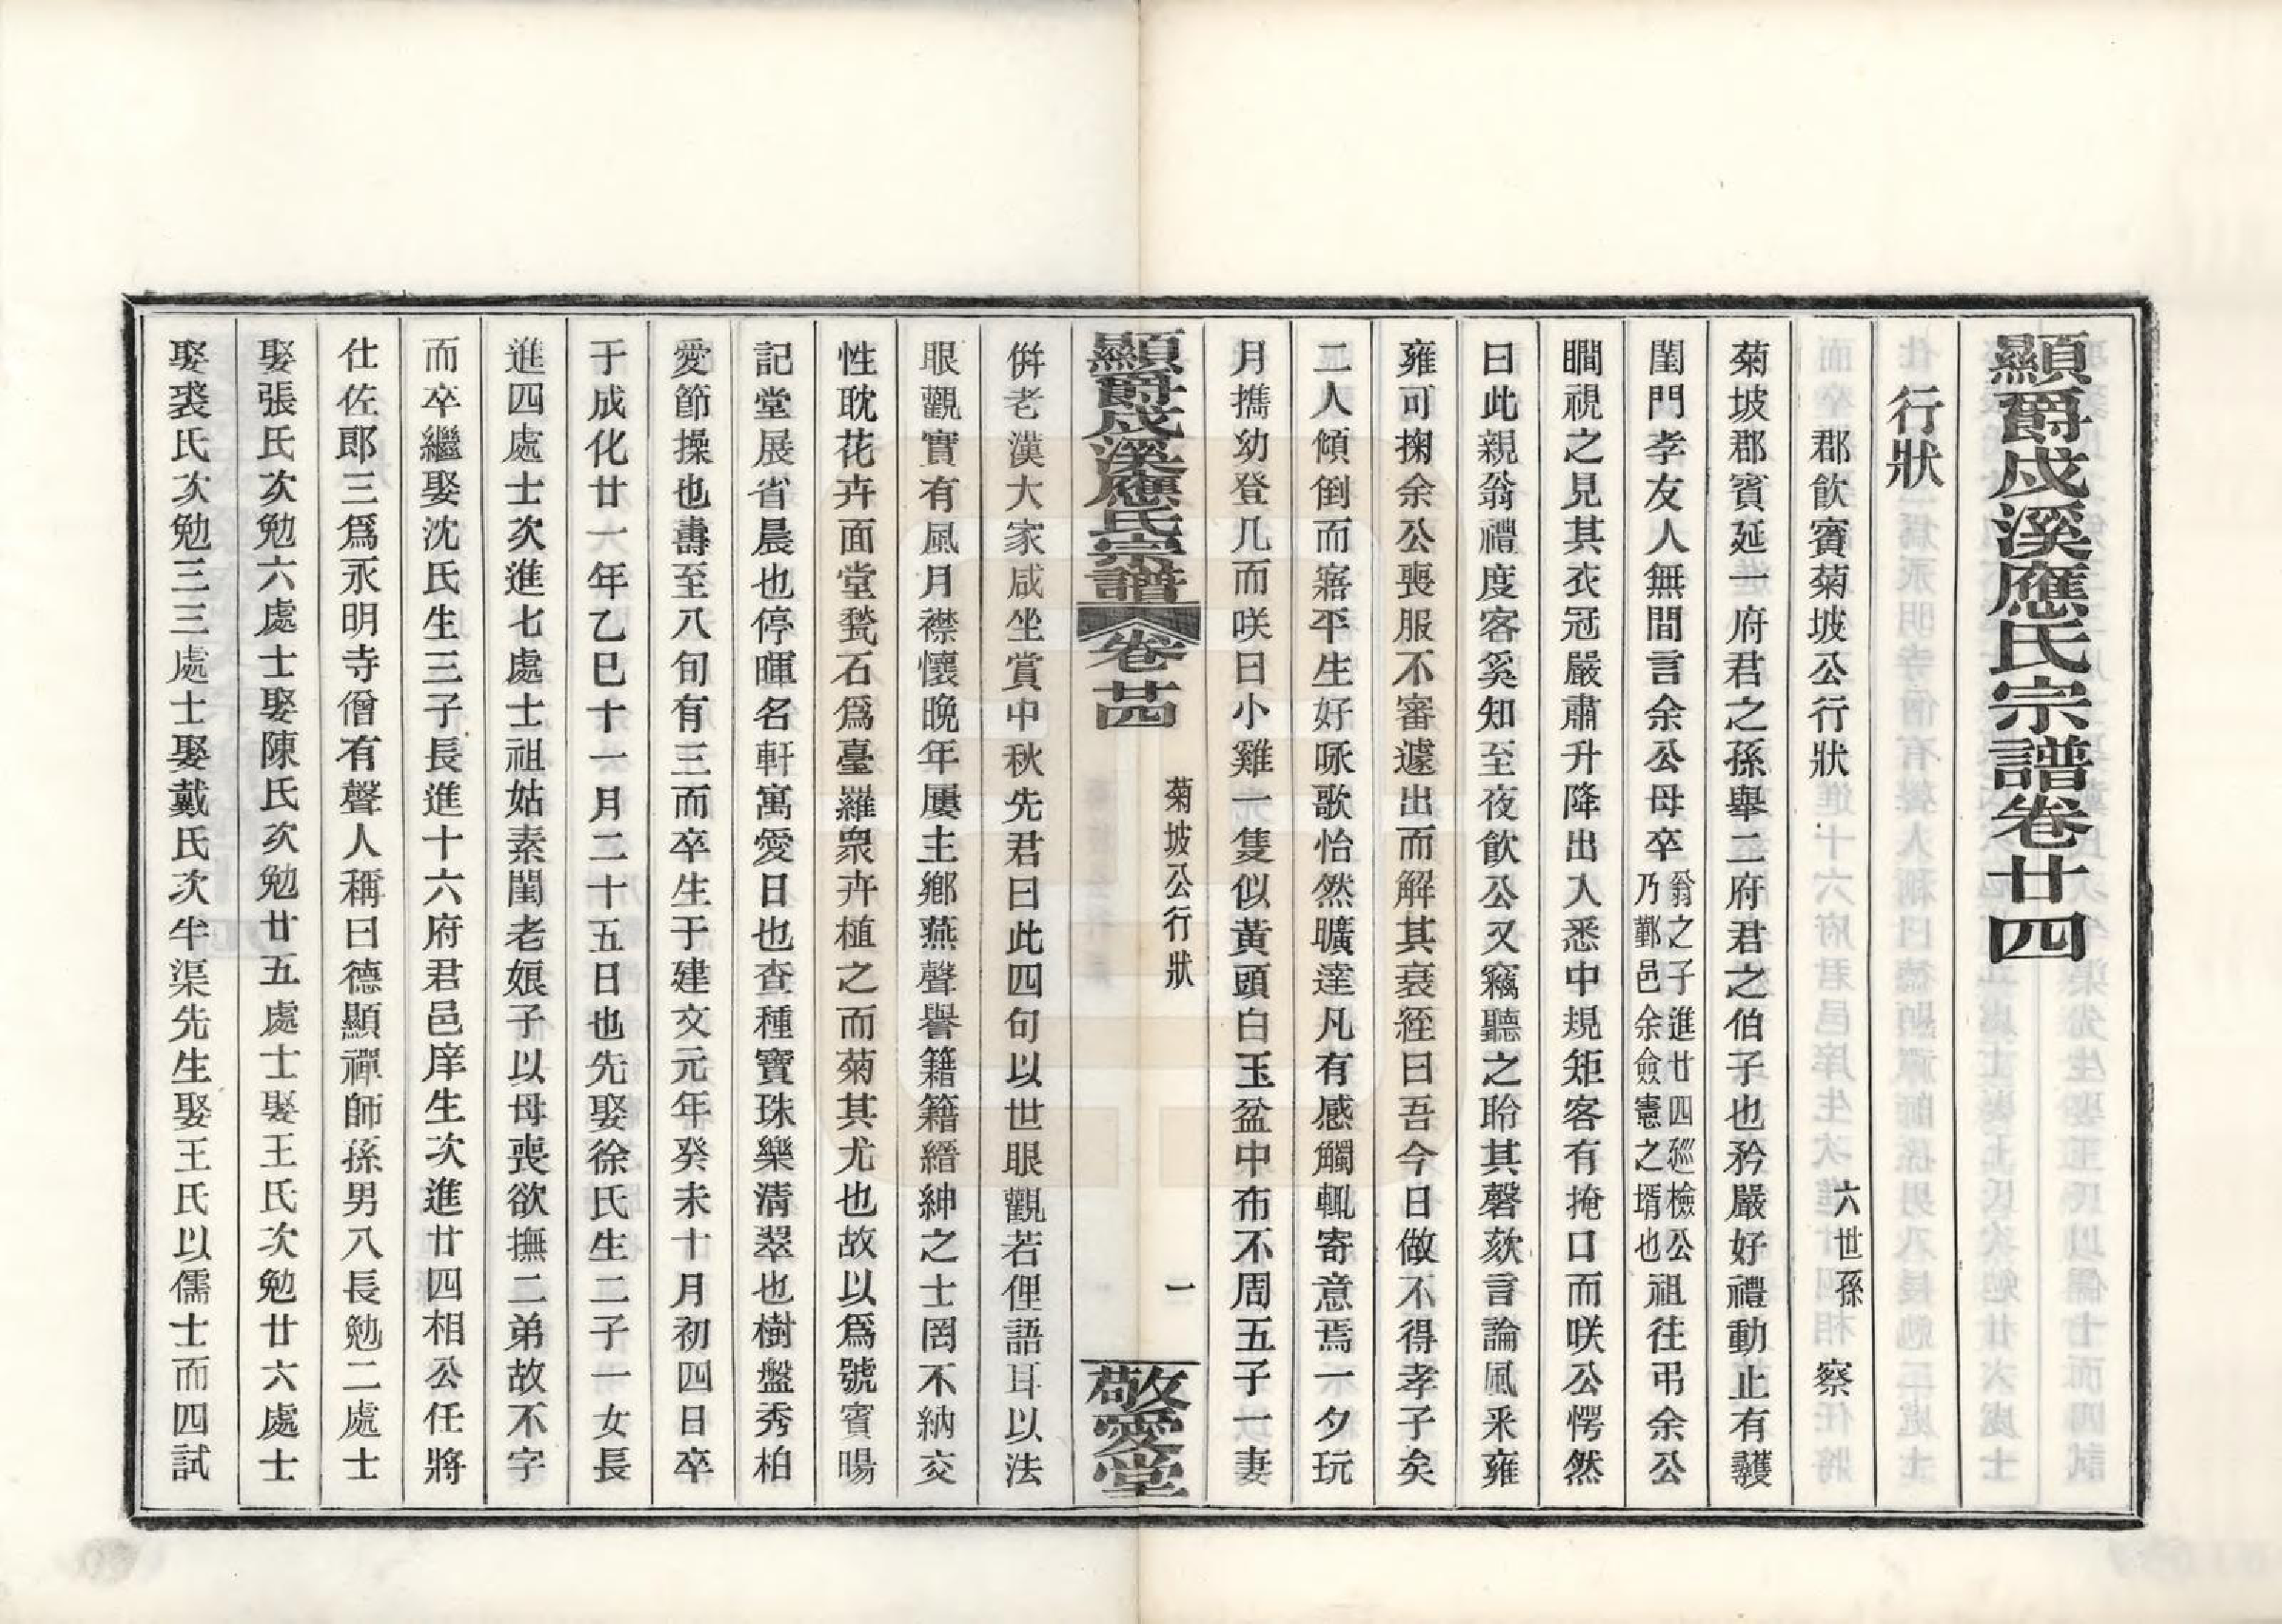 顯爵戍溪應氏宗譜卷廿四
行狀
郡飮賓菊坡公行狀 六世孫 察
菊坡郡賓延一府君之孫舉二府君之伯子也矜嚴好禮動止有頀
閨門孝友人無間言余公母卒翁之子進廿四廵檢公乃鄞邑余僉憲之壻也祖往弔余公
瞷視之見其衣冠嚴肅升降出入悉中規矩客有掩口而咲公愕然
曰此親翁禮度客奚知至夜飮公又竊聽之聆其磬欬言論風釆雍
雍可掬余公喪服不審遽出而解其衰絰曰吾今日做不得孝子矣
二人傾倒而寤平生好咏歌怡然曠達凡有感觸輒寄意焉一夕玩
月携幼登几而咲曰小雞一隻似黃頭白玉盆中布不周五子一妻
顯爵戍溪應氏宗譜 卷廿四 菊坡公行狀 一 敬愛堂
倂老漢大家咸坐賞中秋先君曰此四句以世眼觀若俚語耳以法
眼觀實有風月襟懷晚年屢主鄉燕聲譽籍籍縉紳之士罔不納交
性耽花卉面堂甃石爲臺羅衆卉植之而菊其尤也故以爲號賓暘
記堂展省晨也停暉名軒寓愛日也查種寶珠樂淸翠也樹盤秀柏
愛節操也壽至八旬有三而卒生于建文元年癸未十月初四日卒
于成化廿一年乙巳十一月二十五日也先娶徐氏生二子一女長
進四處士次進七處士祖姑素閨老娘子以母喪欲撫二弟故不字
而卒繼娶沈氏生三子長進十六府君邑庠生次進廿四相公任將
仕佐郎三爲永明寺僧有聲人稱曰德顯禪師孫男八長勉二處士
娶張氏次勉六處士娶陳氏次勉廿五處士娶王氏次勉廿六處士
娶裘氏次勉三三處士娶戴氏次半渠先生娶王氏以儒士而四試